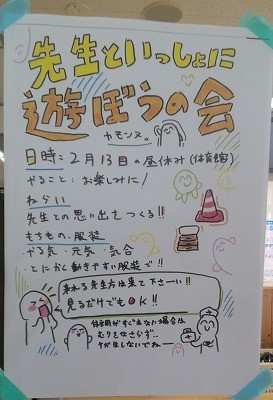 先生といっしょに
遊ぼうの会
カモンヌ。
日時：2月13日の昼休み(体育館)
やること：お楽しみに！
ねらい
先生との思い出をつくる!!
もちもの・服装
やる気・元気・気合
とにかく動きやすい服装で!!
来れる先生方は来て下さーい!!
見るだけでもOK!!
体調がすぐれない場合は
むりをせさらず…
ケガはしないでね〜